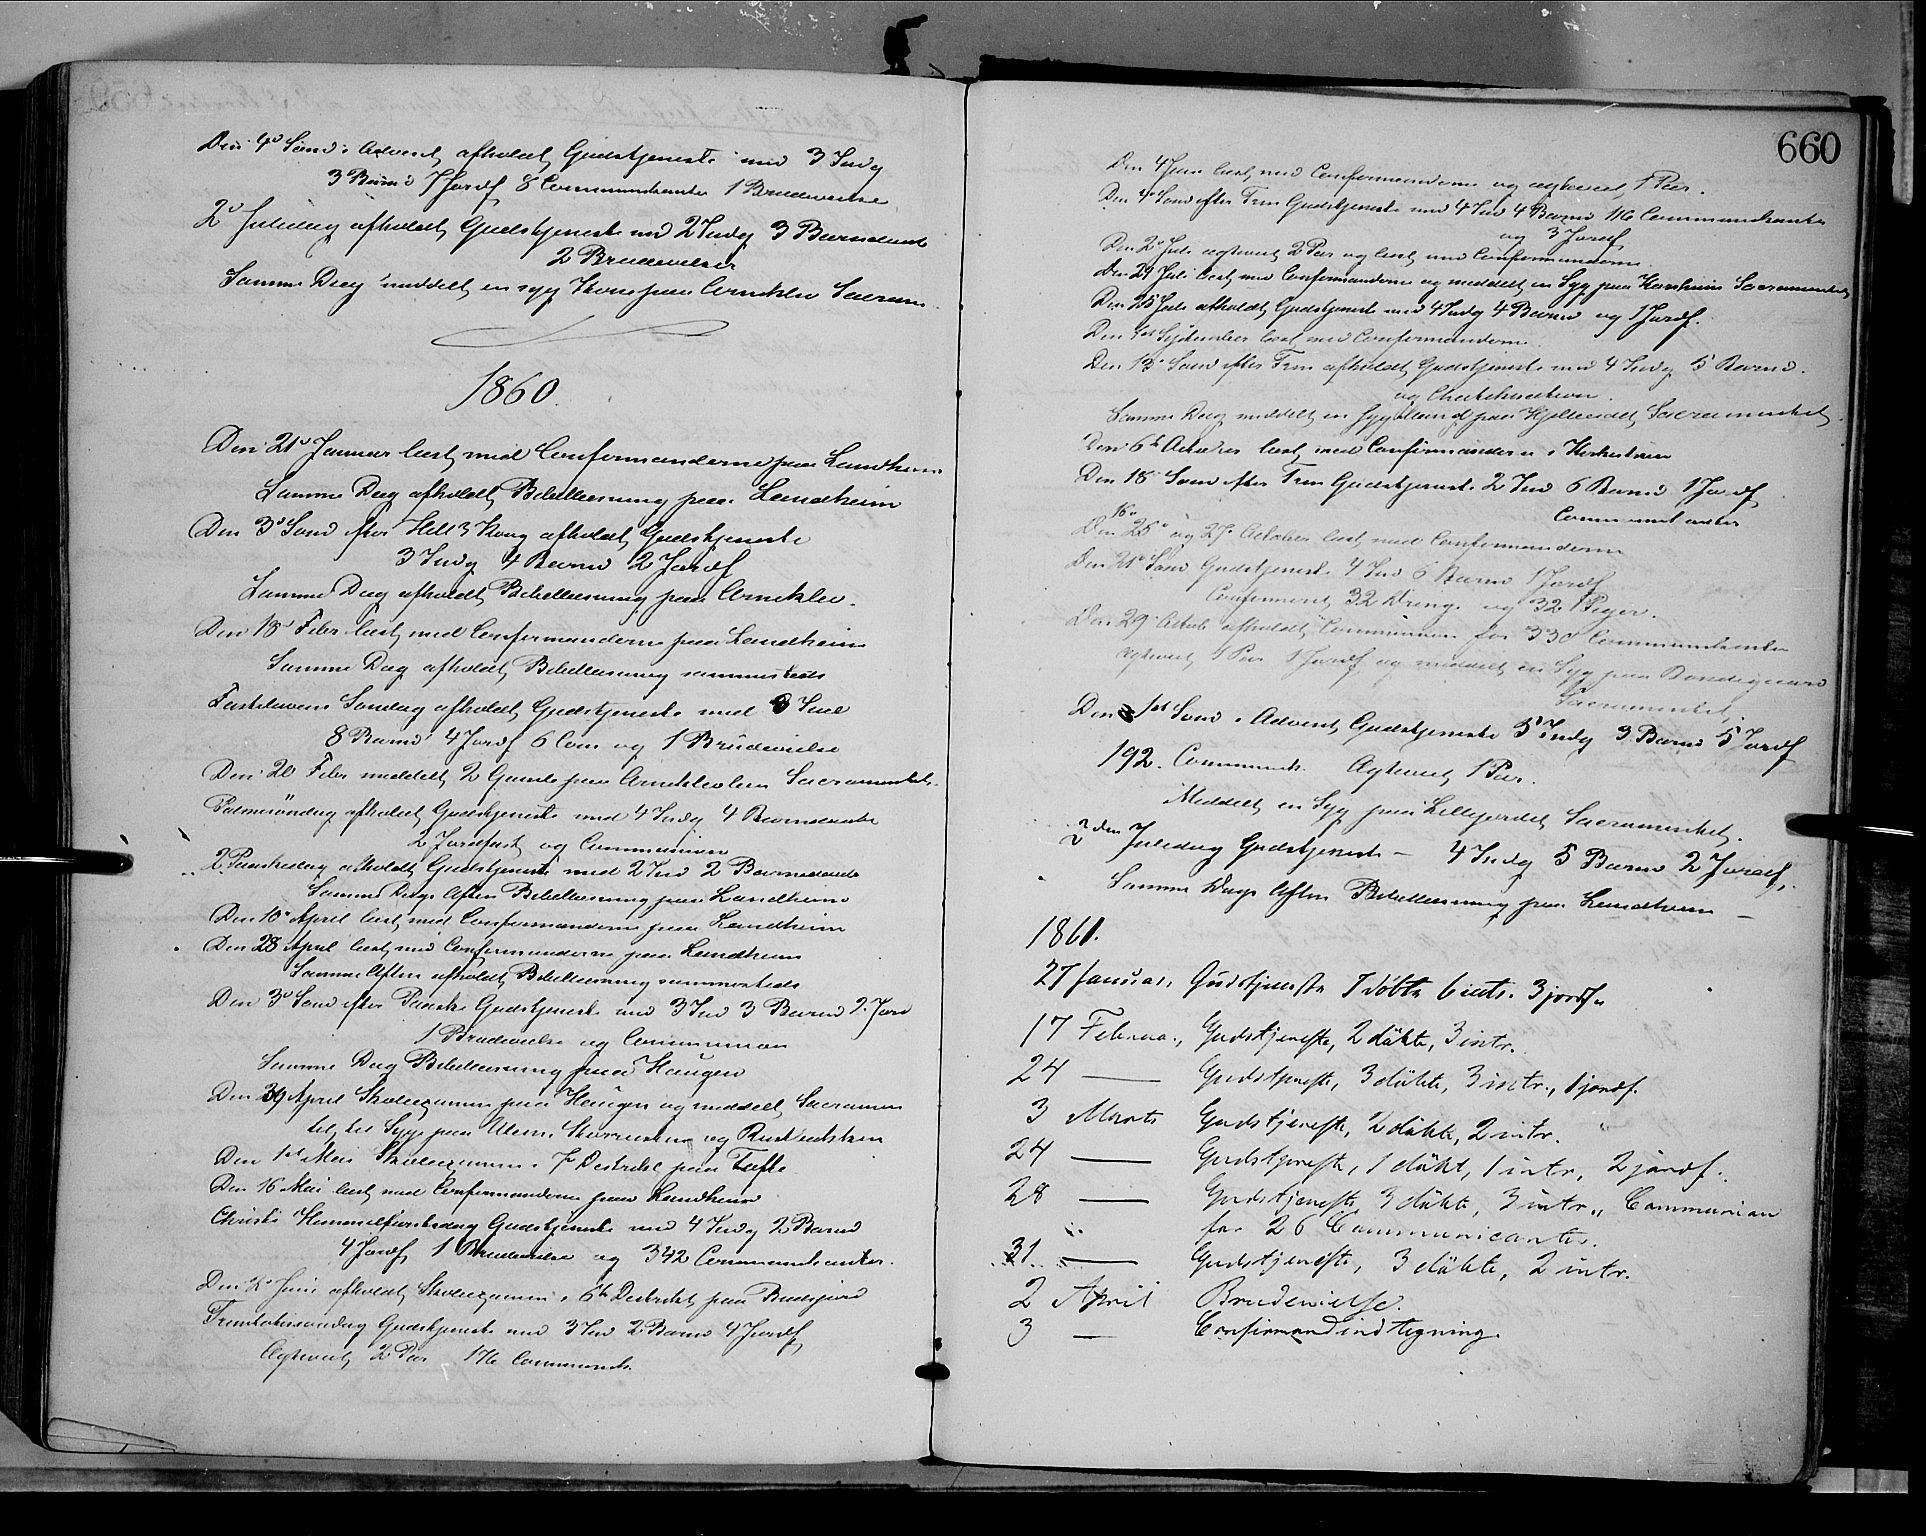 Den 4de Sønd. i Advent afholdt Gudstjeneste med 3 Indg
3 Barnd 7 Jordf 8 Communikanter 1 Brudevielse
2den Juledag afholdt Gudstjeneste med 2 Indg 3 Barnedaab
2 Brudevielser
Samme Dag meddelt en syg Kone paa Arneklev Sacram.
1860.
Den 21de Januar læst med Confirmanderne paa Landheim
Samme Dag afholdt Bibellæsning paa Landheim
Den 3de Sønd efter Hell 3 Kong afholdt Gudstjeneste
3 Indg 4 Barnd 2 Jordf
Samme Dag afholdt Bibellæsning paa Arneklev.
Den 18de Febr læst med Confirmanderne paa Landheim
Samme Dag afholdt Bibellæsning sammesteds
Fastelavns Søndag afholdt Gudstjeneste med 8 Ind
8 Barnd 4 Jordf 6 Com og 1 Brudevielse
Den 20 Febr meddelt 2 Gamle paa Arneklevleien Sacramentet.
Palmesøndag afholdt Gudstjeneste med 4 Indg 4 Barnedaabe
2 Jordfest og Communion
2 Paaskedag afholdt Gudstjeneste med 2 Ind 2 Barnedaab
Samme Dags Aften Bibellæsning paa Landheim
Den 10de April læst med Confirmanderne paa Landheim
Den 28 April læst med Confirmanderne paa Landheim
Samme Aften afholdt Bibellæsning sammesteds
Den 3de Sønd efter Paaske Gudstjeneste med 3 Ind 3 Barnd 2 Jord
1 Brudevielse og Communion
Samme Dag Bibellæsning paa Haugen
Den 30 April Skoleexamen paa Haugen og meddelt Sacramen
tet til Syge paa og
Den 1ste Mai Skoleexamen i 7de Destrikt paa Tufte
Den 16 Mai læst med Confirmanderne paa Landheim
Christi Himmelfartsdag Gudstjeneste med 4 Indg 2 Barnd
4 Jordf, 1 Brudevielse og 342 Communikanter.
Den 2de Juni afholdt Skoleexamen i 6te Destrikt paa
Trinitatissøndag Gudstjeneste med 3 Ind 2 Barnd 4 Jordf
Ægteviet 2 Par 176 Communik.
660
Den 4 Juni læst med Confirmanderne og ægteviet 1 Par.
Den 4de Sønd efter Trin Gudstjeneste med 4 Ind 4 Barnd 116 Communikanter
og 3 Jordf
Den 2de Juli ægteviet 2 Par og læst med Confirmanderne.
Den 21 Juli læst med Confirmanderne og meddelt en Syg paa Sacramentet
Den 25 Juli afholdt Gudstjeneste med 4 Indg 4 Barnd og 1 Jordf.
Den 1ste September læst med Confirmanderne.
Den 13de Sønd efter Trin afholdt Gudstjeneste med 4 Indg 5 Barnd.
og Chatekisation.
Samme Dag meddelt en syg Mand paa Sacramentet.
Den 6te October læst med Confirmanderne i Kirkestuen
Den 18 Sønd efter Trin Gudstjeneste 2 Ind 6 Barnd 1 Jordf
Communikanter
Den 25de og 27de October læst med Confirmanderne
Den 21de Sønd Gudstjeneste 4 Ind 6 Barnd 1 Jordf
Confirmeret 32 Drenge og 32 Piger.
Den 29 Octob afholdt Communion for 330 Communikanter
ægteviet 1 Par 1 Jordf og meddelt en Syg paa Bondegaard
Sacramentet.
Den 1ste Sønd i Advent Gudstjeneste 5 Indg 3 Barnd 5 Jordf
192. Communik. Ægteviet 1 Par.
Meddelt en Syg paa Lillejordet Sacramentet.
2den Juledag Gudstjeneste – 4 Indg 5 Barnd 2 Jordf,
Samme Dags Aften Bibellæsning paa Landheim –
1861.
27 Januar, Gudstjeneste 7 döbte 6 intr. 3 jordf
17 Februar, Gudstjeneste, 2 döbte, 3 intr.
24 — Gudstjeneste, 3 döbte, 3 intr., 1 jordf.
3 Marts Gudstjeneste, 2 döbte, 2 intr.
24 — Gudstjeneste, 1 döbt, 1 intr, 2 jordf.
28 — Gudstjeneste 3 döbte, 3 intr., Communion
for 26 Communicanter.
31. — Gudstjeneste, 3 döbte, 2 intr.
2 April Brudevielse.
3 — Confirmandindtegning.